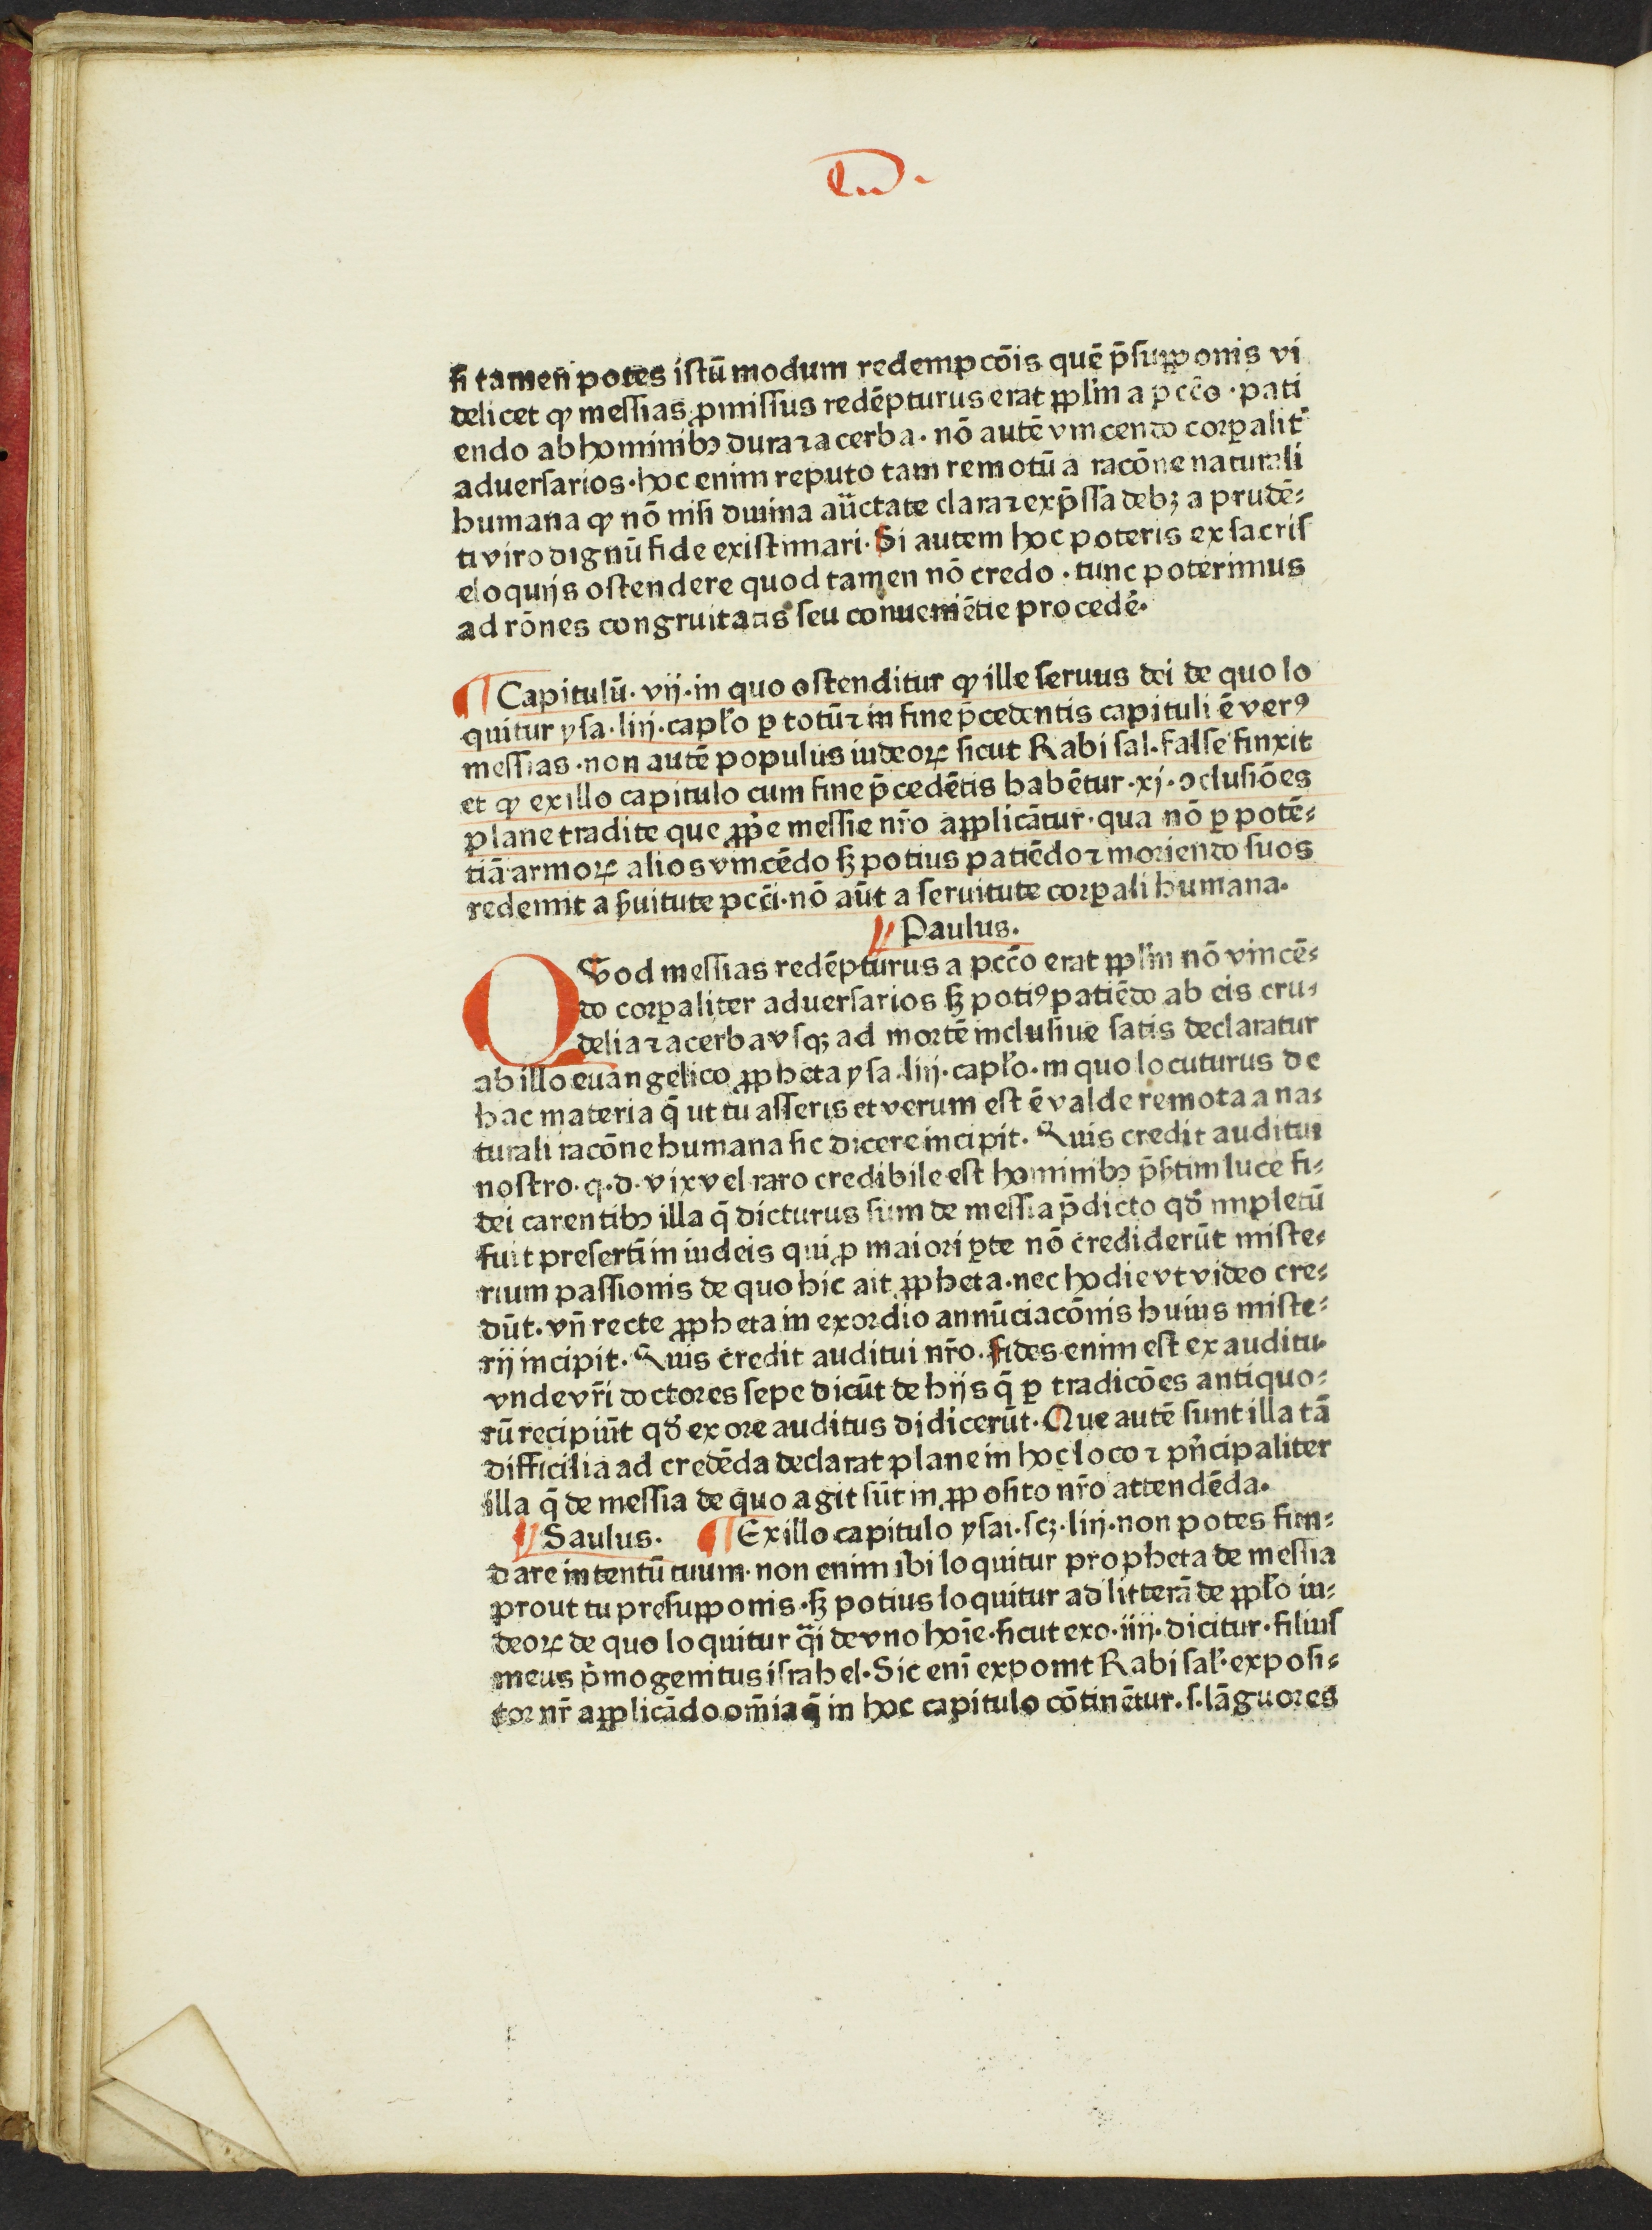 si tamen potes istū modum redempcōis quē p̄supponis vi
delicet ꝙ messias ꝓmissus redēpturus erat ppl'm a pcc̄o · pati
endo ab hominibꝫ dura ⁊ acerba · nō autē vincendo corꝑalit̄
aduersarios · hoc enim reputo tam remotū a racōne naturali
humana ꝙ nō nisi diuina auctate clara ⁊ exp̄ssa debꝫ a prudē⸗
ti viro dignū fide existimari · Si autem hoc poteris ex sacris
eloquijs ostendere quod tamen nō credo · tunc poterimus
ad rōnes congruitatis seu conueniētie procedē·
¶ Capitulū · vij · in quo ostenditur ꝙ ille seruus dei de quo lo
quitur ysa · liij · capło ꝑ totū ⁊ in fine p̄cedentis capituli ē verꝰ
messias · non autē populus iudeoꝝ sicut Rabi sal · false finxit
et ꝙ ex illo capitulo cum fine p̄cedētis habētur · xj · ↄclusiōes
plane tradite que ꝓp̄e messie nr̄o applicātur · qua nō ꝑ potē⸗
tiā armoꝝ alios vincēdo sꝫ potius patiēdo ⁊ moriendo suos
redemit a s̄uitute pcc̄i · nō aūt a seruitute corꝑali humana·
Paulus·
QVod messias redēpturus a pcc̄o erat ppl'm nō vincē⸗
do corꝑaliter aduersarios sꝫ potiꝰ patiēdo ab eis cru⸗
delia ⁊ acerba vsqꝫ ad mortē inclusiue satis declaratur
ab illo euangelico ꝓpheta ysa · liij · capło · in quo locuturus de
hac materia q̄ ut tu asseris et verum est ē valde remota a na⸗
turali racōne humana sic dicere incipit · Quis credit auditui
nostro · q · d · vix vel raro credibile est hominibꝫ p̄s̄tim luce fi⸗
dei carentibꝫ illa q̄ dicturus sum de messia p̄dicto qđ impletū
fuit presertī in iudeis qui ꝓ maiori ꝑte nō crediderūt miste⸗
rium passionis de quo hic ait ꝓpheta · nec hodie vt video cre⸗
dūt · vn̄ recte ꝓpheta in exordio annūciacōnis huius miste⸗
rij incipit · Quis credit auditui nr̄o · fides enim est ex auditu·
vnde vr̄i doctores sepe dicūt de hijs q̄ ꝑ tradicōes antiquo⸗
rū recipiūt qđ ex ore auditus didicerūt · Que autē sunt illa tā
difficilia ad credēda declarat plane in hoc loco ⁊ pn̄cipaliter
illa q̄ de messia de quo agit sūt in ꝓposito nr̄o attendēda·
Saulus · ¶ Ex illo capitulo ysai · scꝫ · liij · non potes fun⸗
dare intentū tuum · non enim ibi loquitur propheta de messia
prout tu presupponis · sꝫ potius loquitur ad litterā de ppło iu⸗
deoꝝ de quo loquitur q̄i de vno hoīe · sicut exo · iiij · dicitur · filius
meus p̄mogenitus israhel · Sic enī exponit Rabi sal' · exposi⸗
tor nr̄ applicādo om̄ia q̄ in hoc capitulo cōtinētur · s · lāguores